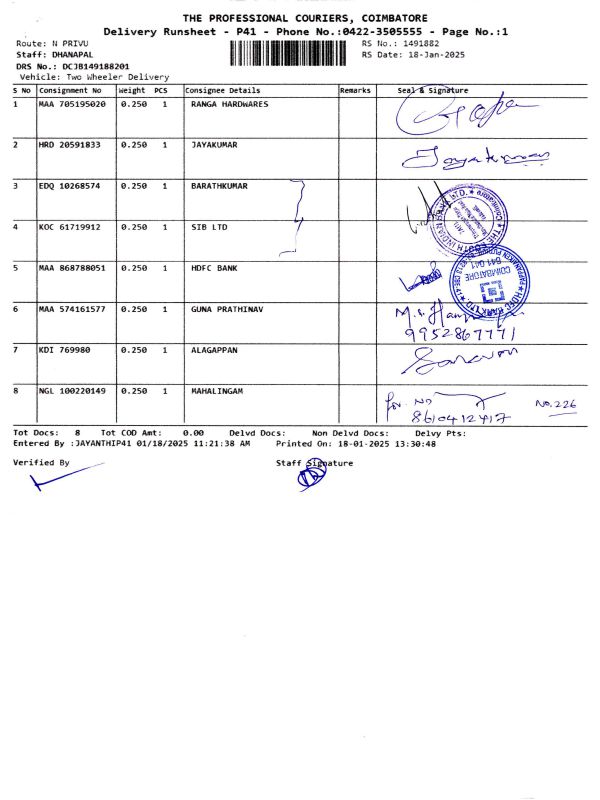 THE PROFESSIONAL COURIERS, COIMBATORE
Delivery Runsheet - P41 - Phone No.:0422-3505555 - Page No.:1
Route: N PRIVU RS No.: 1491882
Staff: DHANAPAL RS Date: 18-Jan-2025
DRS No.: DCJB149188201
Vehicle: Two Wheeler Delivery
S No Consignment No Weight PCS Consignee Details Remarks Seal & Signature
1 MAA 705195020 0.250 1 RANGA HARDWARES
2 HRD 20591833 0.250 1 JAYAKUMAR Jayakumar
3 EDQ 10268574 0.250 1 BARATHKUMAR
4 KOC 61719912 0.250 1 SIB LTD
5 MAA 868788051 0.250 1 HDFC BANK
COIMBATORE
641 041
HDFC BANK LTD
6 MAA 574161577 0.250 1 GUNA PRATHINAV M.S.
9952867771
7 KDI 769980 0.250 1 ALAGAPPAN
8 NGL 100220149 0.250 1 MAHALINGAM for NO NO.226
8610412417
Tot Docs: 8 Tot COD Amt: 0.00 Delvd Docs: Non Delvd Docs: Delvy Pts:
Entered By :JAYANTHIP41 01/18/2025 11:21:38 AM Printed On: 18-01-2025 13:30:48
Verified By Staff Signature